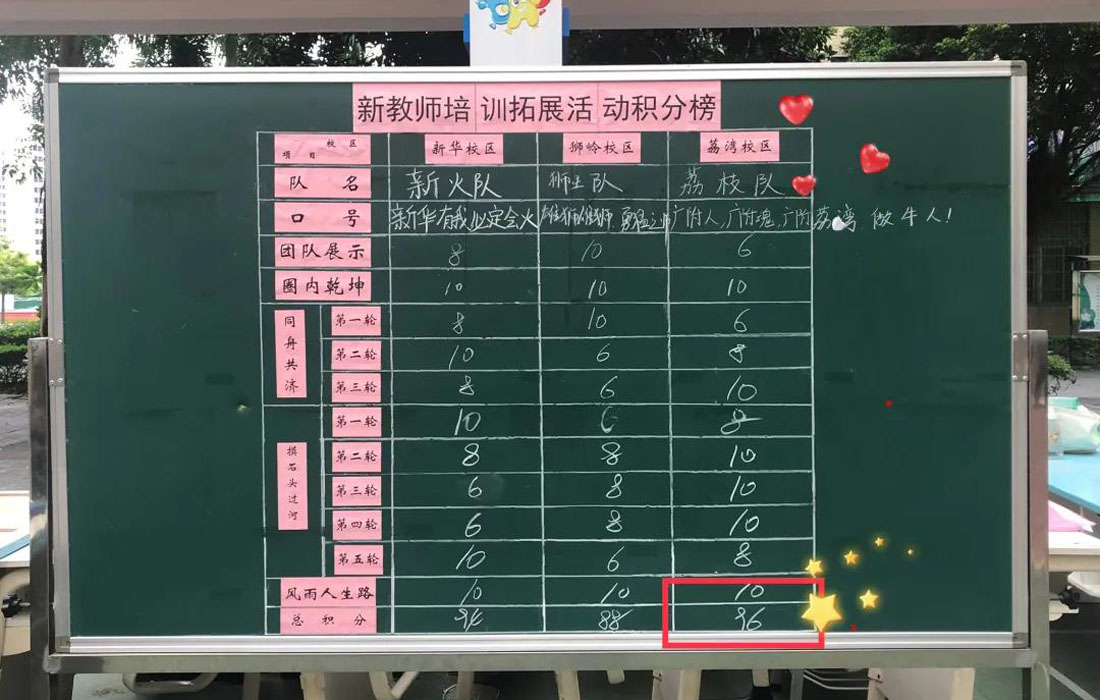 新教师培训拓展活动积分榜
校区 项目 新华校区 狮岭校区 荔湾校区
队名 新火队 狮王队 荔枝队
口号 新华有我必定会火 雄狮雄狮 勇猛之师 广附人,广附魂,广附荔湾 做牛人!
团队展示 8 10 6
圈内乾坤 10 10 10
同舟共济 第一轮 8 10 6
第二轮 10 6 8
第三轮 8 6 10
摸石头过河 第一轮 10 6 8
第二轮 8 8 10
第三轮 6 8 10
第四轮 6 8 10
第五轮 10 6 8
风雨人生路 10 10 10
总积分 94 88 96